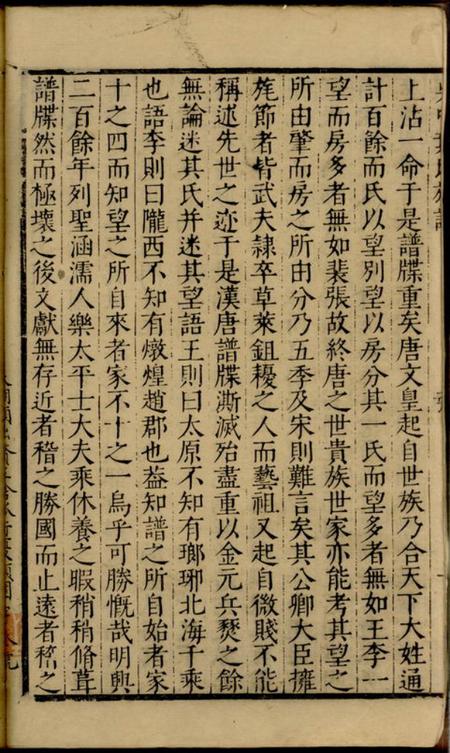 上沾一命于是譜牒重矣唐文皇起自世族乃合天下大姓通
計百餘而氏以望別望以房分其一氏而望多者無如王李一
望而房多者無如裴張故終唐之世貴族世家亦能考其望之
所由肇而房之所由分乃五季及宋則難言矣其公卿大臣擁
旄節者皆武夫隷卒草萊鉏耰之人而藝祖又起自微賤不能
稱述先世之迹于是漢唐譜牒澌滅殆盡重以金元兵燹之餘
無論迷其氏并迷其望語王則曰太原不知有瑯琊北海千乘
也語李則曰隴西不知有燉煌趙郡也葢知譜之所自始者家
十之四而知望之所自來者家不十之一烏乎可勝慨哉明興
二百餘年列聖涵濡人樂太平士大夫乘休養之暇稍稍脩葺
譜牒然而極壞之後文獻無存近者稽之勝國而止遠者稽之